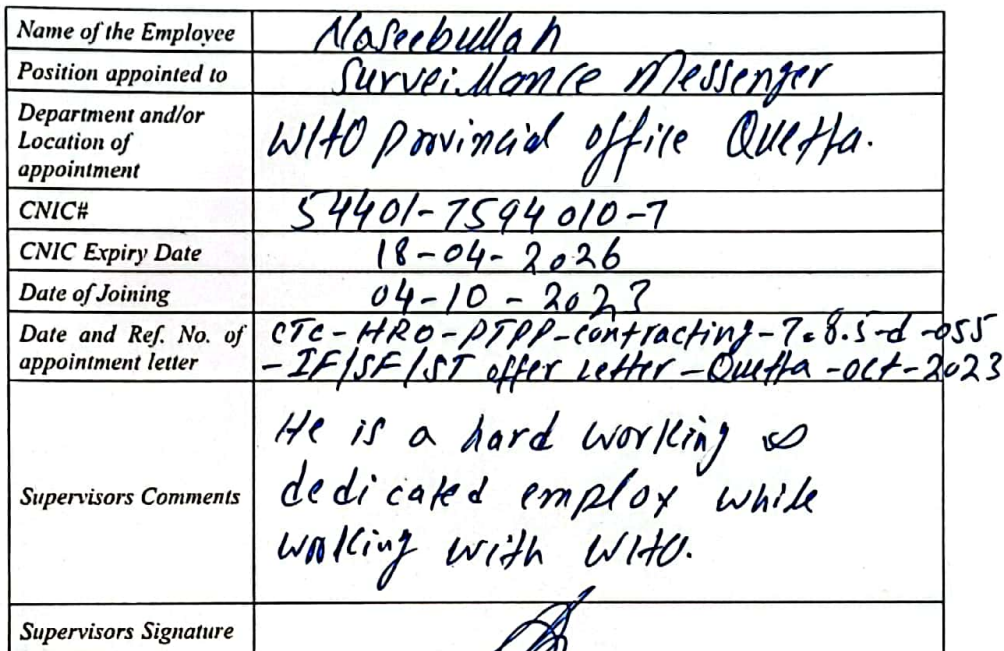 Name of the Employee Naseebullah
Position appointed to Surveillance Messenger
Department and/or
Location of
appointment
WHO provincial office Quetta.
CNIC# 54401-7594010-7
CNIC Expiry Date 18-04-2026
Date of Joining 04-10-2023
Date and Ref. No. of
appointment letter
CTC-HRO-PTPP-contracting-7.8.5-d-055
-IF/SF/ST offer Letter-Quetta-oct-2023
Supervisors Comments
He is a hard working &
dedicated employ while
working with WHO.
Supervisors Signature